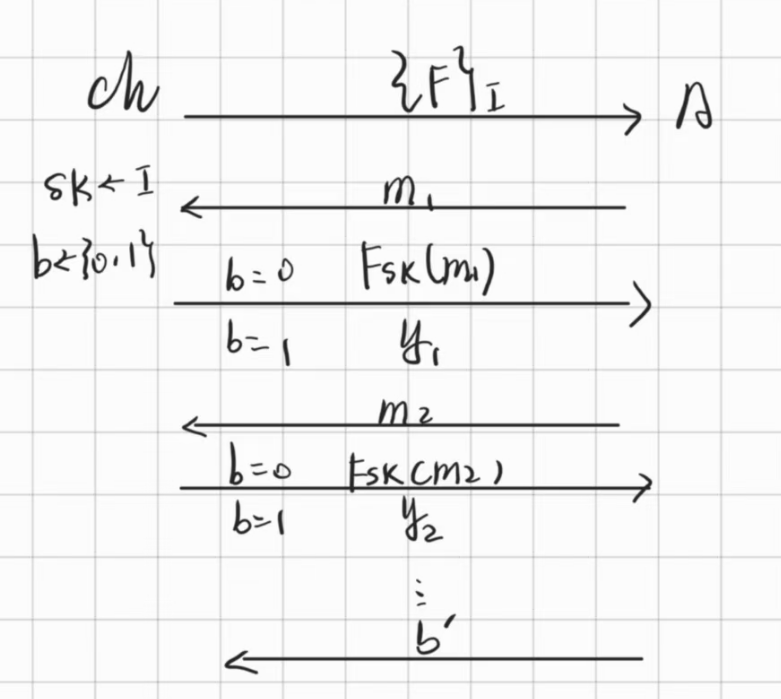 ch {F}_I A
sk ← I
m₁
b ← {0,1}
b=0 F_SK(m₁)
b=1 y₁
m₂
b=0 F_SK(m₂)
b=1 y₂
⋮
b′